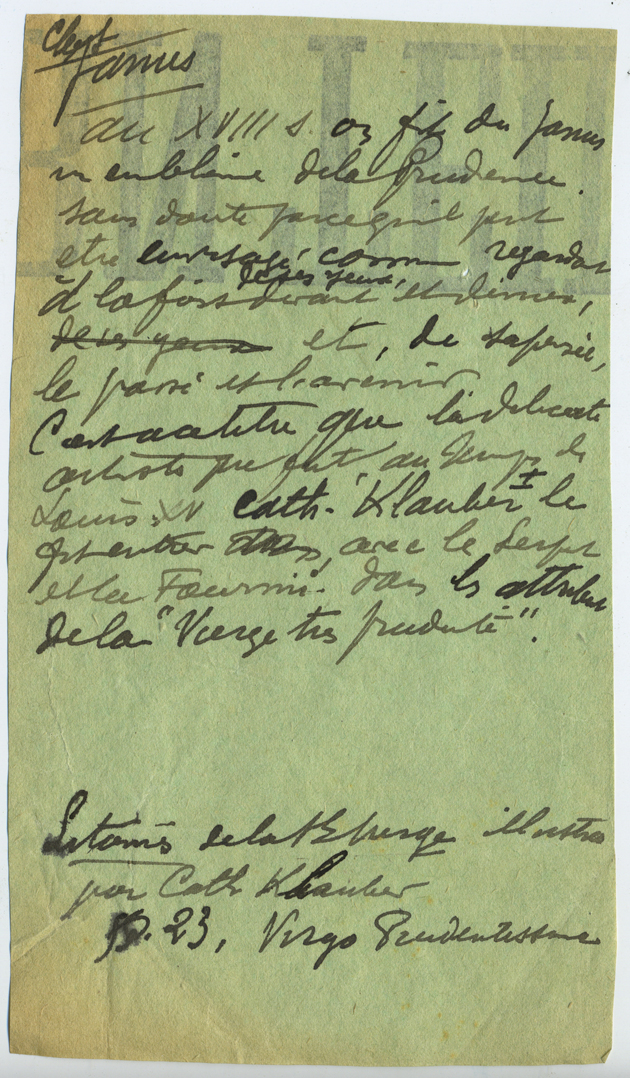 Janus
au XVIII s. on fit du Janus
un emblème de la Prudence.
sans doute parce qu'il peut
etre envisagé comme regardant
de ses yeux,
à la fois devant et derrière,
de ses yeux et, de sa pensée,
le passé et l'avenir
C'est à ce titre que la délicate
artiste que fut, au temps de
Louis XV Cath. Klauber le
fit entrer avec le Serpt
et la Fourmi. dans les attributs
de la "Vierge très prudente".
Litanies de la Ste Vierge illustrées
par Cath Klauber
p. 23, Virgo Prudentissima